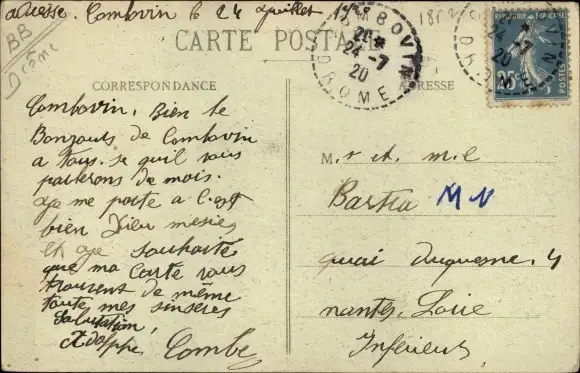 adresse. Combovin le 24 Juillet
BB
Drôme
CARTE POSTALE
COMBOVIN
20 *
24 -7
20
DROME
24 -7
20
DROME
REPUBLIQUE FRANÇAISE
25
POSTES
CORRESPONDANCE
ADRESSE
Combovin. Bien le
Bonjours de Combovin
a tous. se quil vous
parlerons de mois.
je me porte a
bien Dieu mersie
et je souhaite
que ma Carte vous
trouvent de même
toute mes sinseres
Salutation,
Adolphe Combe
M. r et. m. e
Bastia MN
quai duquesne. 4
nantes, Loire
Inferieur